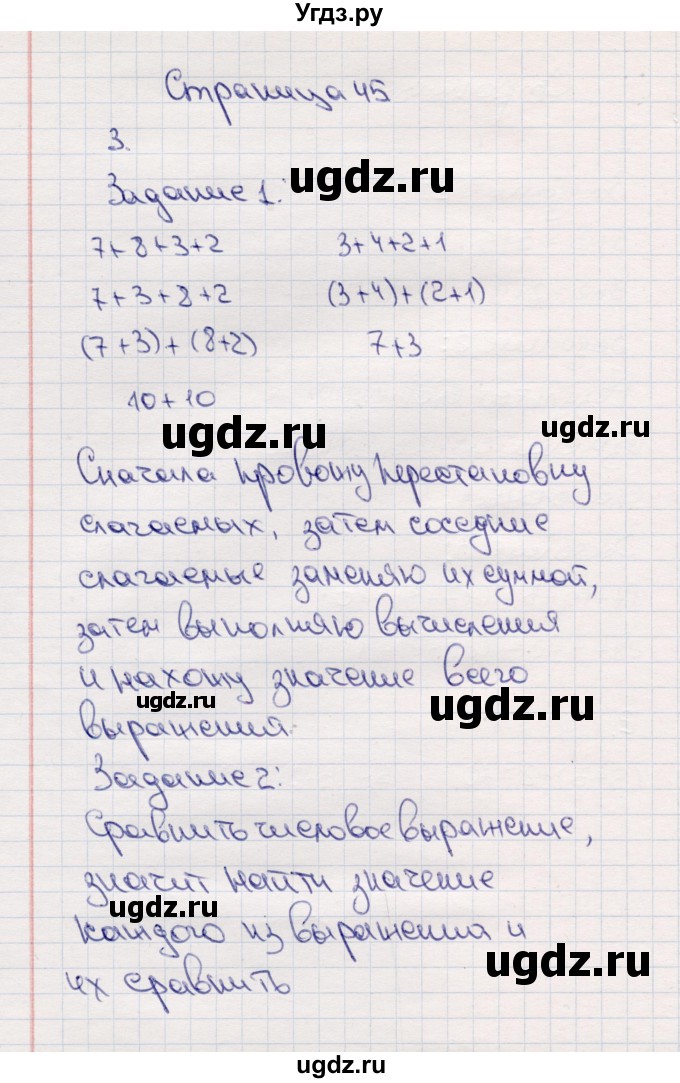 Угдз.ру
Страница 45
3.
Задание 1:
ugdz.ru
7+8+3+2 3+4+2+1
7+3+8+2 (3+4)+(2+1)
(7+3)+(8+2) 7+3
10+10
ugdz.ru ugdz.ru
Сначала провожу перестановку
слагаемых, затем соседние
слагаемые заменяю их суммой,
затем выполняю вычисления
и нахожу значение всего
ugdz.ru ugdz.ru
выражения.
Задание 2:
Сравнить числовое выражение,
значит найти значение
ugdz.ru
каждого из выражения и
ugdz.ru
их сравнить
ugdz.ru